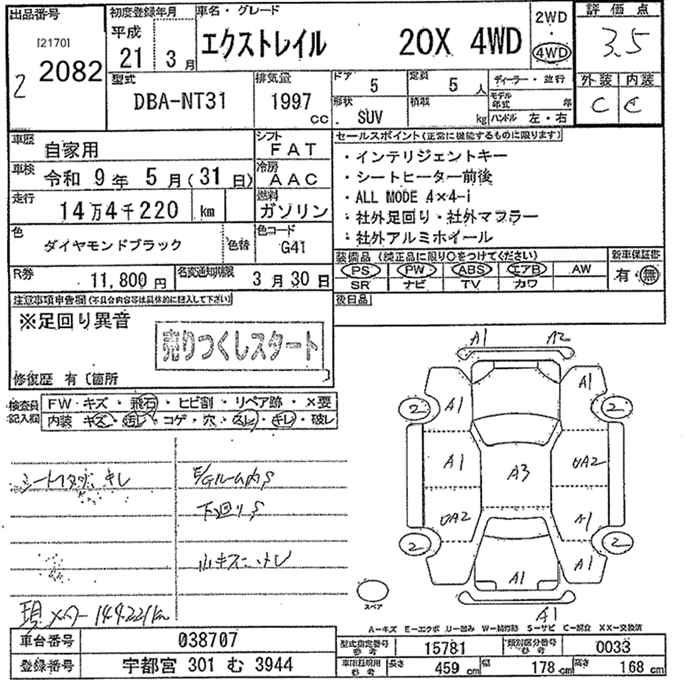 出品番号 初度登録年月 車名・グレード 2WD 評価点
[2170] 平成 エクストレイル 20X 4WD 4WD 3.5
2 2082 21年 3月
型式 排気量 ドア 5 定員 5人 ディーラー・並行 外装 内装
DBA-NT31 1997cc 形状 SUV 積載 kg モデル年式 年 C C
ハンドル 左・右
車歴 自家用 シフト FAT セールスポイント(正常に機能するものに限ります)
車検 令和 9年 5月(31日) 冷房 AAC ・インテリジェントキー
・シートヒーター前後
走行 14万4千220 km 燃料 ガソリン ・ALL MODE 4×4-i
・社外足回り・社外マフラー
色 ダイヤモンドブラック 色替 色コード G41 ・社外アルミホイール
装備品(純正品に限り○をつけてください) 新車保証書
PS PW ABS エアB AW 有・無
SR ナビ TV カワ
R券 11,800円 名変通知期限 3月30日
注意事項申告欄(不具合内容等は具体的に記入して下さい) 後日品
※足回り異音
売りつくしスタート
修復歴 有〔箇所
検査員記入欄 FW・キズ・飛石・ヒビ割・リペア跡・×要
内装 キズ・汚レ・コゲ・穴・スレ・キレ・破レ
キレ
下廻りS
現メーター 144221km
A1 A2
A1 A1
2 2
A1 A3 UA2
UA2 A1
2 2
A1
スペア A1
A-キズ E-エクボ U-凹み W-補修跡 S-サビ C-腐食 XX-交換済
車台番号 038707 型式指定番号参考 15781 類別区分番号参考 0033
登録番号 宇都宮 301 む 3944 長さ 459cm 幅 178cm 高さ 168cm